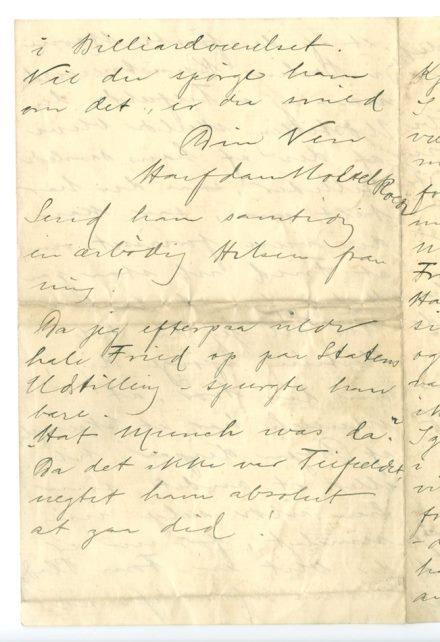 i Billiardværelset.
Vil du spørge ham
om det, er du snild
Din Ven
Halfdan Nobel Roede
Send ham samtidig
en ærbødig Hilsen fra
mig!
Da jeg efterpaa vilde
hale Fried op paa Statens
Udstilling – spurgte han
bare.
"Hat Munch was da?"
Da det ikke var Tilfældet,
negtet ham absolut
at gaa did!